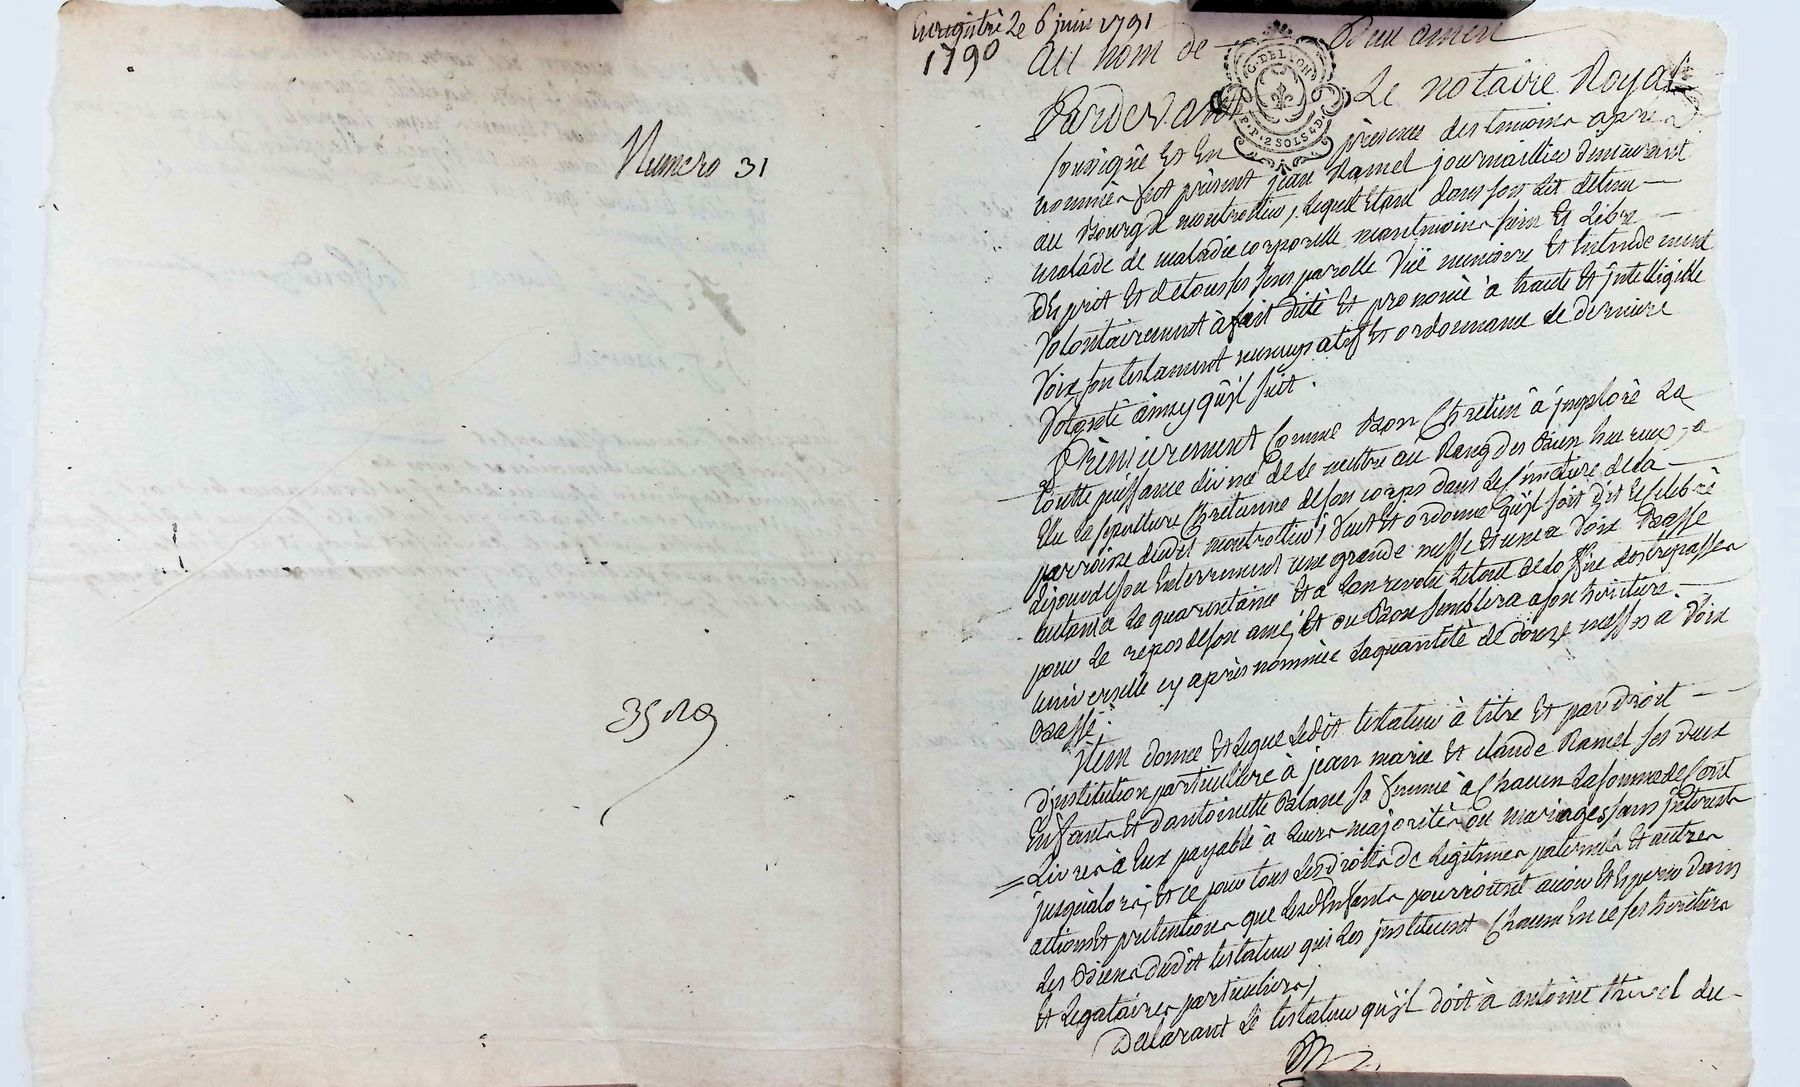 Numero 31
35 no
Enregistré Le 6 juin 1791
1790
au nom de Dieu amen
G. DE LYON
P.P. 2 SOLS 4 D.
Pardevant Le notaire Royal
soussigné Et En présence des temoins apres
nommés fut présent jean Ramel journaillier demeurant
au Bourg de montrottier, Lequel Etant dans son Lit detenu
malade de maladie corporelle neantmoins sain Et Libre
d'Esprit Et de tous ses sens parolle Vüe memoire Et Entendement
Volontairement à fait dicté Et prononcé à haute Et intelligible
Voix son testament nuncupatif Et ordonnance de derniere
Volonté ainsy qu'il suit.
Prèmierement Comme Bon Chretien à jmploré La
toutte puissance divine de le mettre au Rang des Bien heureux, a
Elu la sepulture Chretienne de son corps dans Le Cimetiere de la
parroisse dudit montrottier, Veut Et ordonne qu'il soit dit Et celebré
Le jour de son Enterrement une grande messe Et une a Voix Basse
autant a la quarantaine Et a L'an revolu Le tout de Loffice des trepassés
pour Le repos de son ame, Et ou Bon semblera a son heritiere
universelle cy après nommée La quantité de douze messes a Voix
Basse.
Item donne Et Legue Ledit testateur à titre Et par droit
d'institution particuliere à jean marie Et claude Ramel ses deux
Enfants Et d'antoinette Blanc sa femme à Chacun La somme de Cent
Livres à Eux payable à Leurs majorités ou mariages sans jnterets
jusqu'alors, Et ce pour tous Les droits de Legitimes paternels Et autres
actions Et pretentions que Lesd Enfants pourroient avoir Et Esperer dans
Les Biens dudit testateur qui Les jnstituent Chacun En ce ses heritiers
Et Legataires particuliers,
Declarant Le testateur qu'il doit à antoine du-